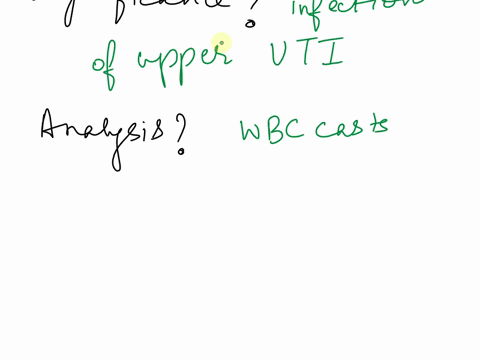 infection
of upper UTI
Analysis? WBC casts